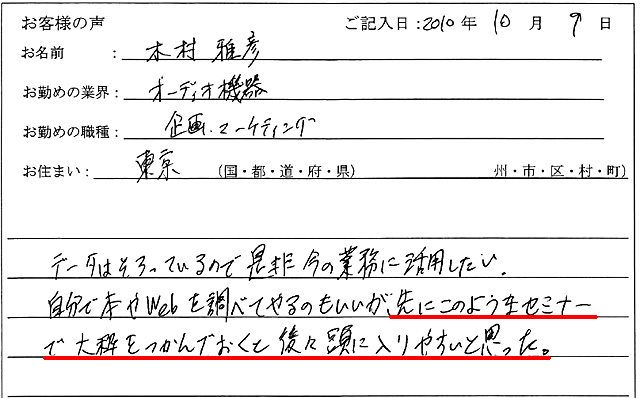 お客様の声 ご記入日:2010年 10月 9日
お名前 : 木村 雅彦
お勤めの業界: オーディオ機器
お勤めの職種: 企画.マーケティング
お住まい: 東京 (国・都・道・府・県) 州・市・区・村・町)
データはそろっているので是非今の業務に活用したい.
自分で本やWebを調べてやるのもいいが、先にこのようなセミナー
で大枠をつかんでおくと後々頭に入りやすいと思った。